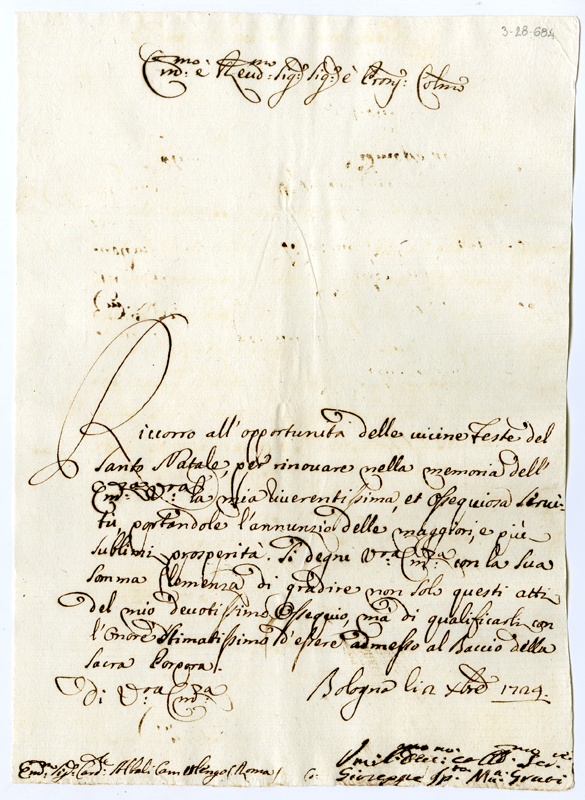 3-28-684
Em:mo e Rever:mo Sig:r Sig:r è Pron: Colmo
Ricorro all'opportunità delle vicine Feste del
Santo Natale, per rinovare nella memoria dell'
Em:za V:ra la mia riverentissima, et Ossequiosa Servi-
tù, portandole l'annunzio delle maggiori, e più
sublimi prosperità. Si degni V:ra Em:za con la Sua
somma Clemenza di gradire non solo questi atti
del mio devotissimo Ossequio, mà di qualificarli con
l'Onore Stimatissimo d'essere admesso al Baccio della
Sacra Porpora.
Di V:ra Em:za
Bologna li 2 Xbre 1724.
Em:o Sig:r Card:le Albani Camerlengo (Roma)
Giuseppe M:a